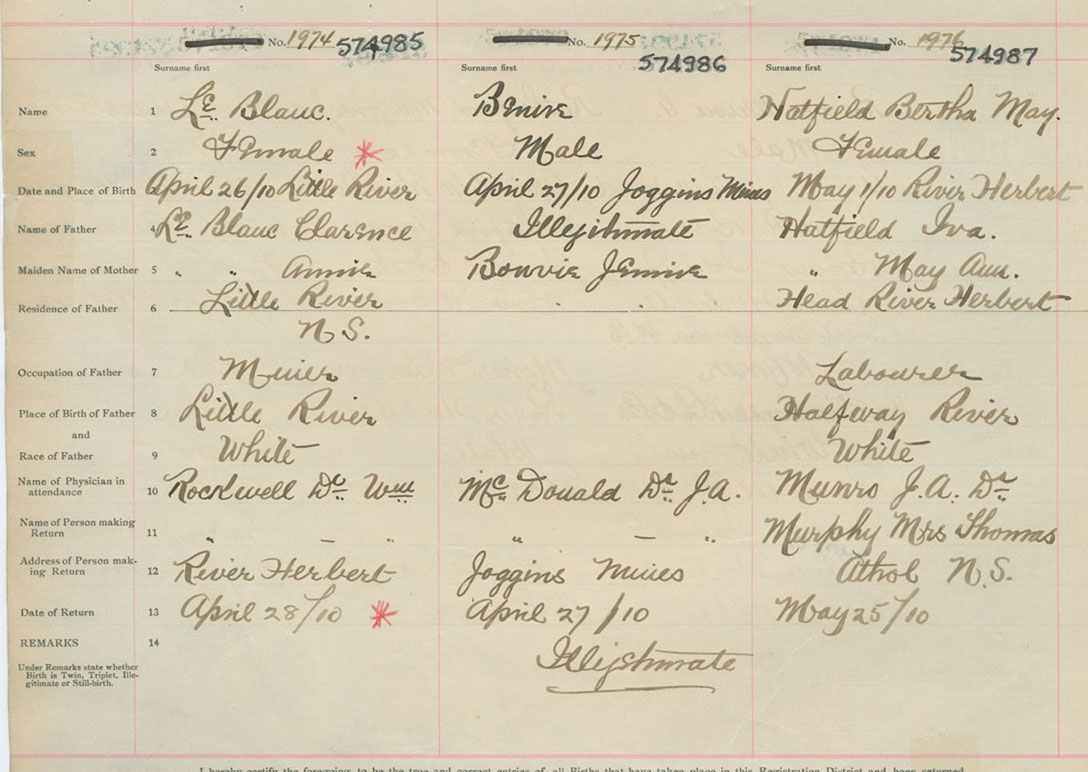 No. 1974 574985 No. 1975 574986 No. 1976 574987
Surname first Surname first Surname first
Name 1 Le Blanc. Benire Hatfield Bertha May.
Sex 2 Female * Male Female
Date and Place of Birth 3 April 26/10 Little River April 27/10 Joggins Mines May 1/10 River Herbert
Name of Father 4 Le Blanc Clarence Illejitimate Hatfield Ira.
Maiden Name of Mother 5 " " Annie Bourvie Jennie " May Ann.
Residence of Father 6 Little River Head River Herbert
N.S.
Occupation of Father 7 Miner Labourer
Place of Birth of Father 8 Little River Halfway River
and
Race of Father 9 White White
Name of Physician in
attendance 10 Rockwell Dr. Wm McDonald Dr. J.A. Munro J.A. Dr
Name of Person making
Return 11 " – " " – " Murphy Mrs Thomas
Address of Person mak-
ing Return 12 River Herbert Joggins Mines Athol N.S.
Date of Return 13 April 28/10 * April 27/10 May 25/10
REMARKS 14 Illejitimate
Under Remarks state whether
Birth is Twin, Triplet, Ille-
gitimate or Still-birth.
I hereby certify the foregoing to be the true and correct entries of all Births that have taken place in this Registration District and been returned